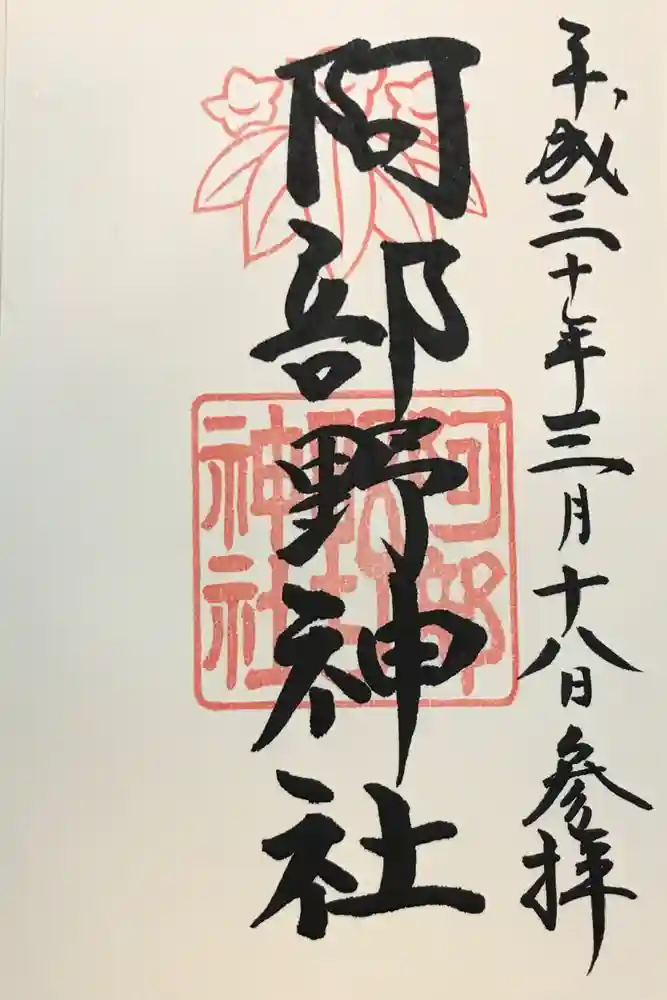 平成三十年三月十八日参拝
阿部野神社
阿部野神社